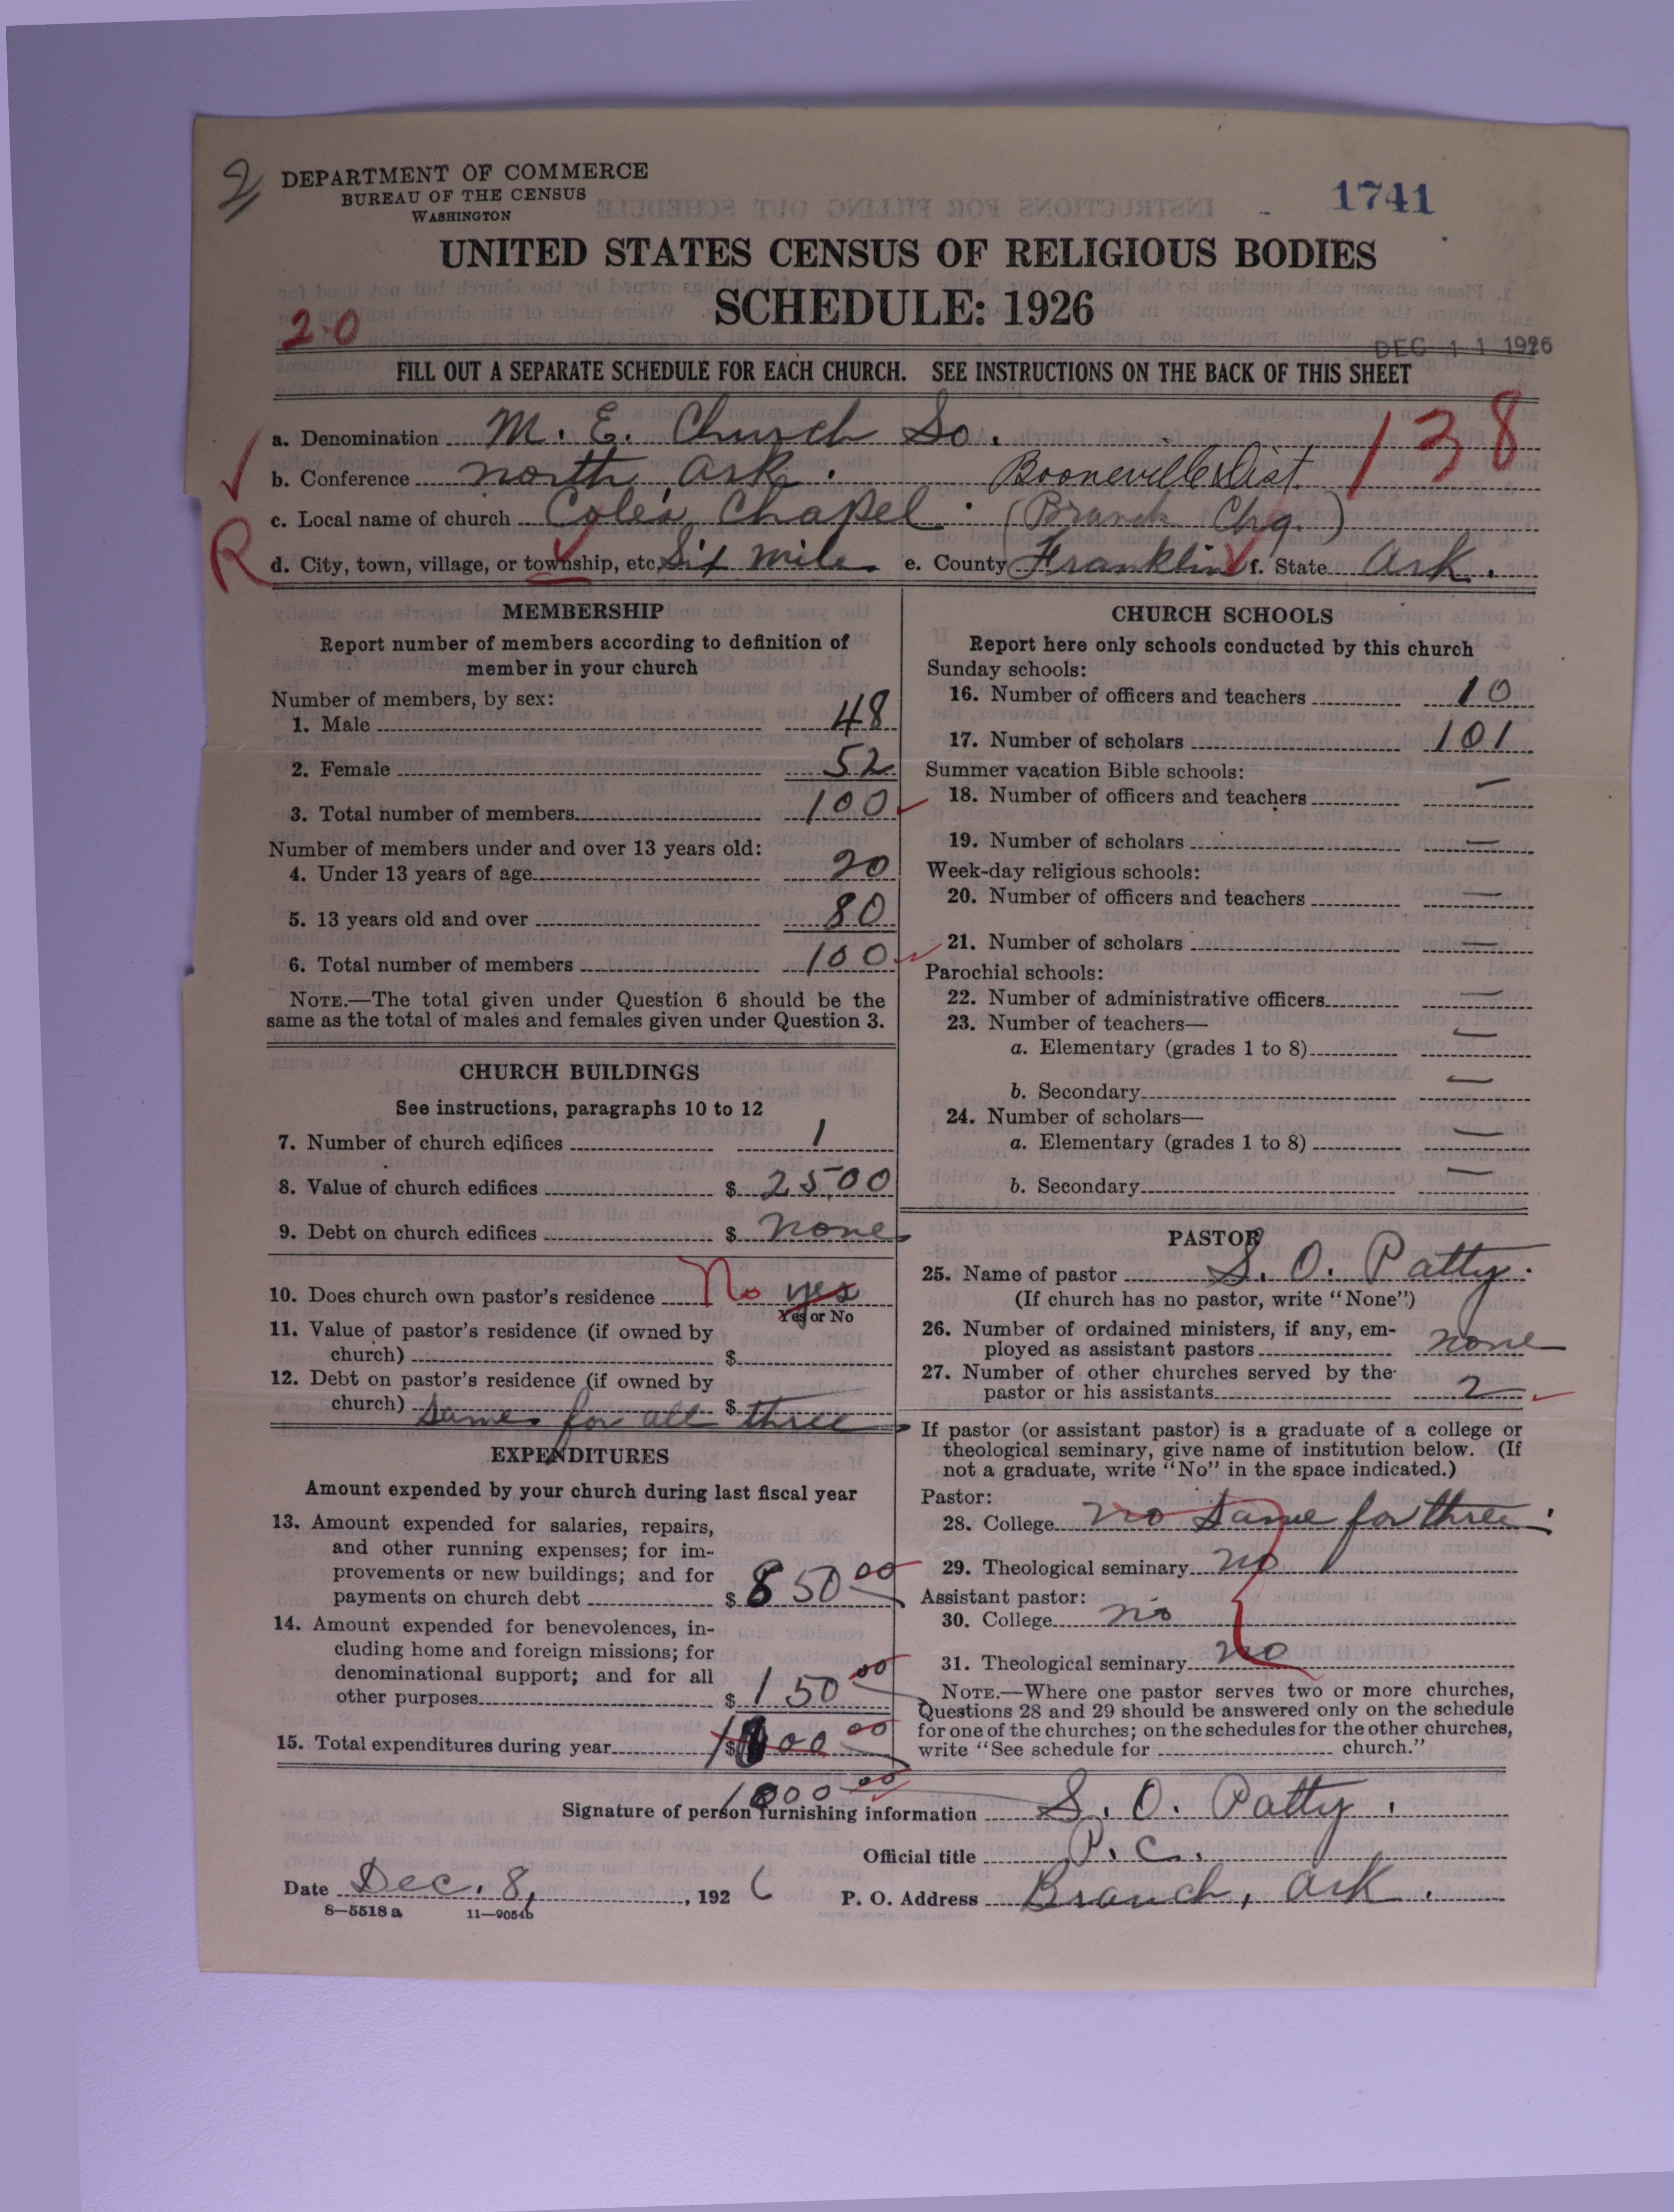 2
DEPARTMENT OF COMMERCE
BUREAU OF THE CENSUS
WASHINGTON
1741
UNITED STATES CENSUS OF RELIGIOUS BODIES
SCHEDULE: 1926
20
DEC 11 1926
FILL OUT A SEPARATE SCHEDULE FOR EACH CHURCH. SEE INSTRUCTIONS ON THE BACK OF THIS SHEET
a. Denomination M. E. Church So. 138
b. Conference North Ark. Booneville Dist.
c. Local name of church Cole's Chapel. (Branch Chg.)
R
d. City, town, village, or township, etc. Six Mile. e. County Franklin f. State Ark.
MEMBERSHIP
Report number of members according to definition of
member in your church
Number of members, by sex:
1. Male 48
2. Female 52
3. Total number of members 100
Number of members under and over 13 years old:
4. Under 13 years of age 20
5. 13 years old and over 80
6. Total number of members 100
NOTE.—The total given under Question 6 should be the
same as the total of males and females given under Question 3.
CHURCH BUILDINGS
See instructions, paragraphs 10 to 12
7. Number of church edifices 1
8. Value of church edifices $ 2500
9. Debt on church edifices $ none
10. Does church own pastor's residence No yes
Yes or No
11. Value of pastor's residence (if owned by
church) $
12. Debt on pastor's residence (if owned by
church) $
Same for all three
EXPENDITURES
Amount expended by your church during last fiscal year
13. Amount expended for salaries, repairs,
and other running expenses; for im-
provements or new buildings; and for
payments on church debt $ 850 00
14. Amount expended for benevolences, in-
cluding home and foreign missions; for
denominational support; and for all
other purposes $ 150 00
15. Total expenditures during year $ 1000 00
1000 00
CHURCH SCHOOLS
Report here only schools conducted by this church
Sunday schools:
16. Number of officers and teachers 10
17. Number of scholars 101
Summer vacation Bible schools:
18. Number of officers and teachers —
19. Number of scholars —
Week-day religious schools:
20. Number of officers and teachers —
21. Number of scholars —
Parochial schools:
22. Number of administrative officers —
23. Number of teachers—
a. Elementary (grades 1 to 8) —
b. Secondary —
24. Number of scholars—
a. Elementary (grades 1 to 8) —
b. Secondary —
PASTOR
25. Name of pastor S. O. Patty.
(If church has no pastor, write "None")
26. Number of ordained ministers, if any, em-
ployed as assistant pastors none
27. Number of other churches served by the
pastor or his assistants 2
If pastor (or assistant pastor) is a graduate of a college or
theological seminary, give name of institution below. (If
not a graduate, write "No" in the space indicated.)
Pastor:
28. College no Same for three.
29. Theological seminary no
Assistant pastor:
30. College no
31. Theological seminary no
NOTE.—Where one pastor serves two or more churches,
Questions 28 and 29 should be answered only on the schedule
for one of the churches; on the schedules for the other churches,
write "See schedule for church."
Signature of person furnishing information S. O. Patty.
Official title P. C.
Date Dec. 8, , 1926 P. O. Address Branch, Ark.
8—5518 a 11—9054b